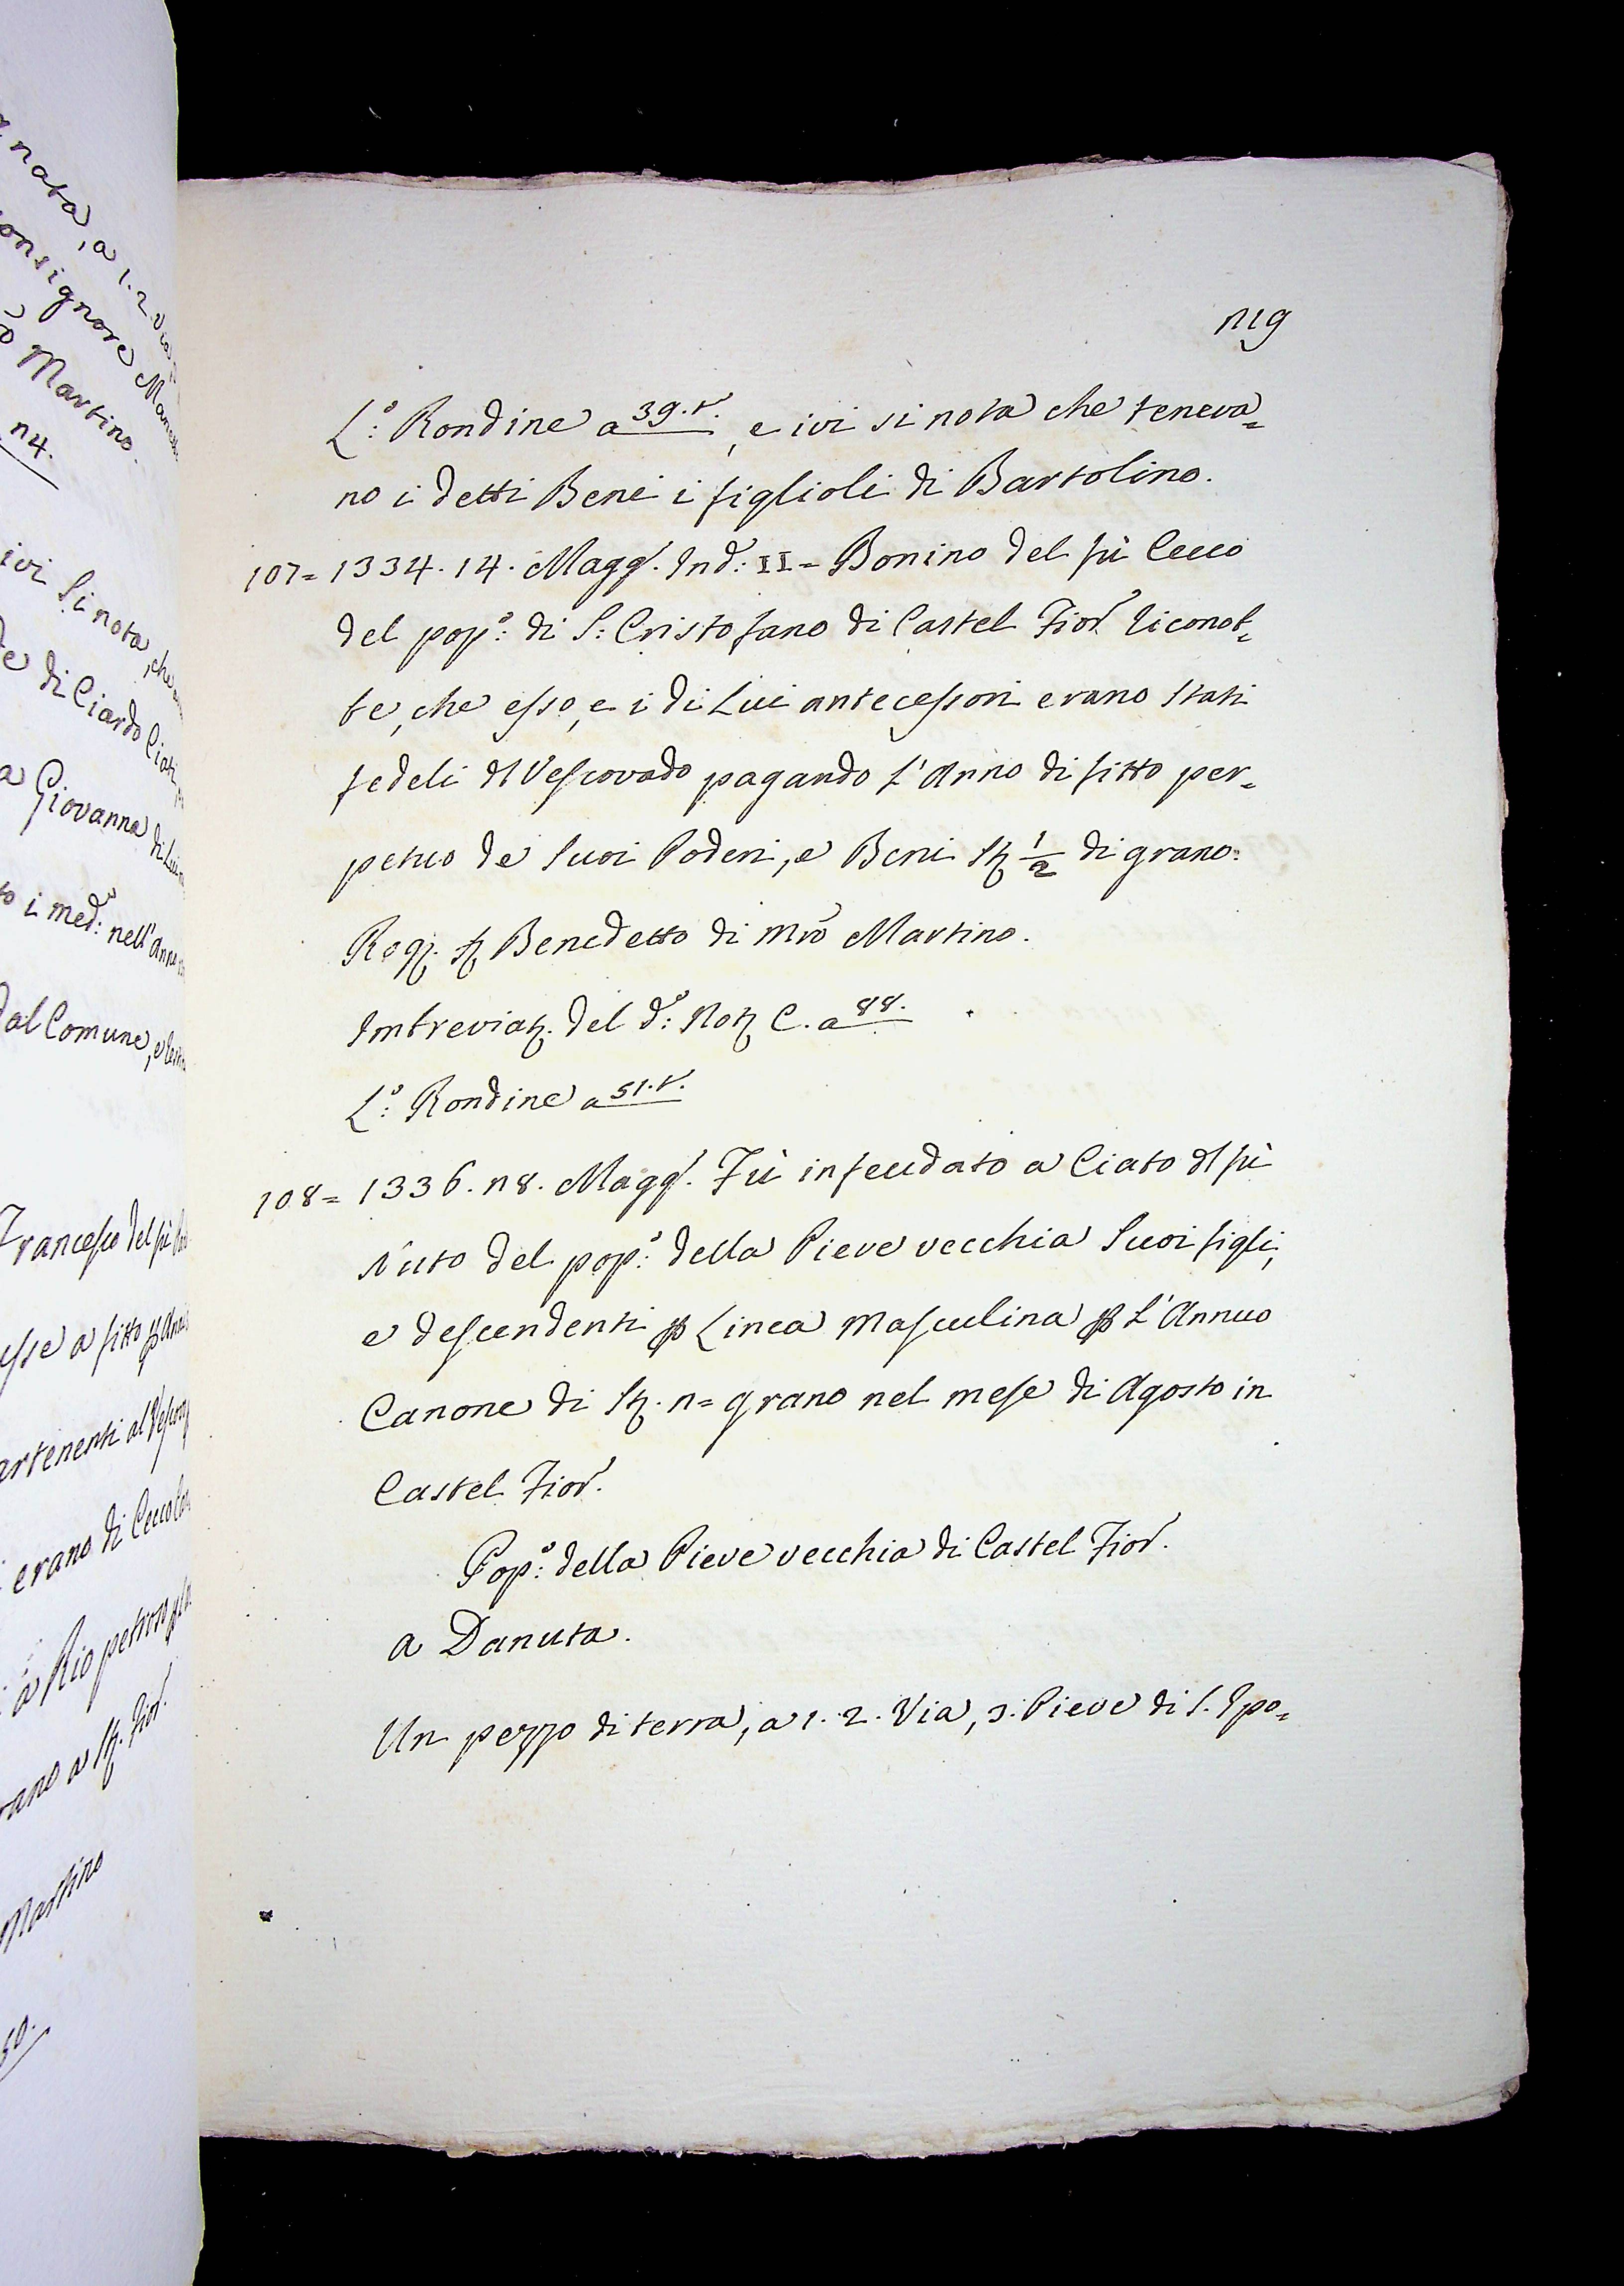 219
L.º: Rondine a 39.t., e ivi si nota che teneva=
no i detti Beni i figlioli di Bartolino.
107= 1334. 14. Magg.º Ind.: II = Bonino del fù Cecco
del pop.º: di S: Cristofano di Castel Fior.º riconob=
be, che esso, e i di Lui antecessori erano stati
fedeli dl Vescovado pagando l'Anno di fitto per=
petuo de Suoi Poderi, e Beni St 1/2 di grano.
Rog. S Benedetto di Mrõ Martino.
Imbreviaz. del d.º: Not C. a 88.
L.º: Rondine a 51.t.
108= 1336. 28. Magg.º Fù infeudato a Ciato dl fù
Nuto del pop.º: della Pieve vecchia Suoi figli,
e descendenti p Linea Masculina p L'Annuo
Canone di St. 2= grano nel mese di Agosto in
Castel Fior.º
Pop.º: della Pieve vecchia di Castel Fior.º
a Danuta.
Un pezzo di terra, a 1. 2. Via, 3. Pieve di S. Ipo=
nota, a 1. 2. Via
Martino.
24.
ivi Si nota, che
di Ciardo
Giovanna di Lui
i med.: nell'Anno
dal Comune, e
Francesco del fù
a fitto p
artenenti al
erano di
a Rio petroso
Martino
50.